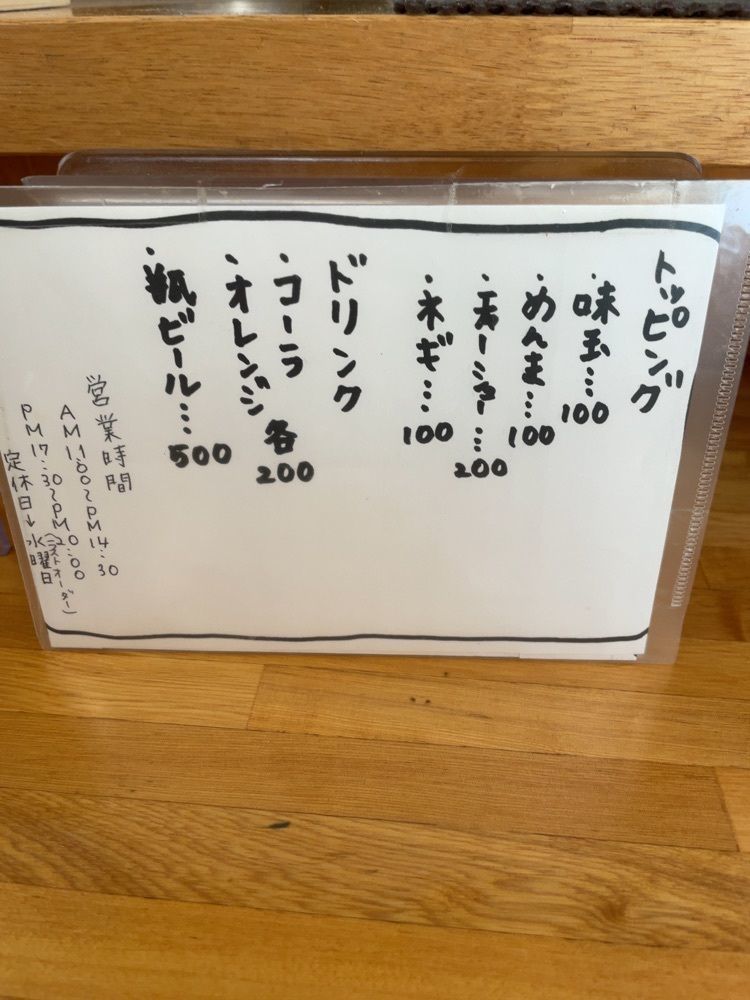 トッピング
・味玉…100
・めんま…100
・チャーシュー…200
・ネギ…100
ドリンク
・コーラ 各200
・オレンジ
・瓶ビール…500
営業時間
AM11:00〜PM14:30
PM17:30〜PM20:00
(ラストオーダー)
定休日→水曜日